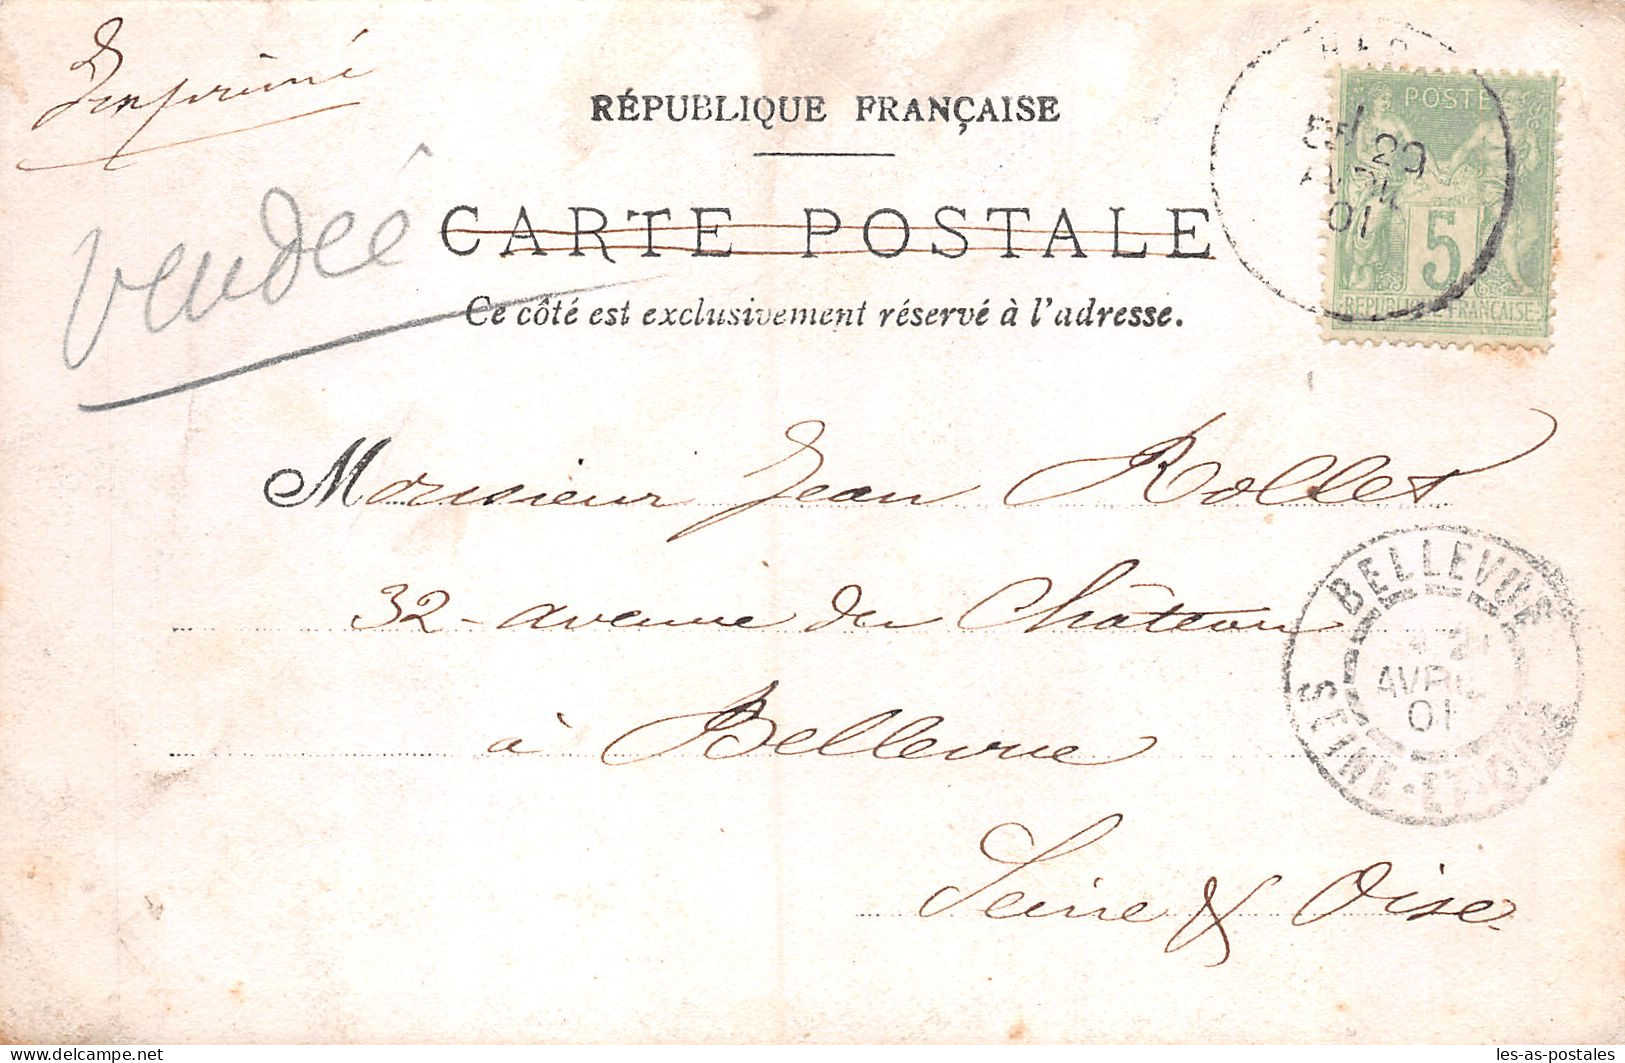 Imprimé
RÉPUBLIQUE FRANÇAISE
CARTE POSTALE
Ce côté est exclusivement réservé à l'adresse.
Vendée
POSTE
5
REPUBLIQUE FRANÇAISE
AVRIL
01
Monsieur Jean Rollet
32 - avenue du Château
à Bellevue
Seine & Oise
BELLEVUE
AVRIL
01
SEINE-ET-OISE
les-as-postales